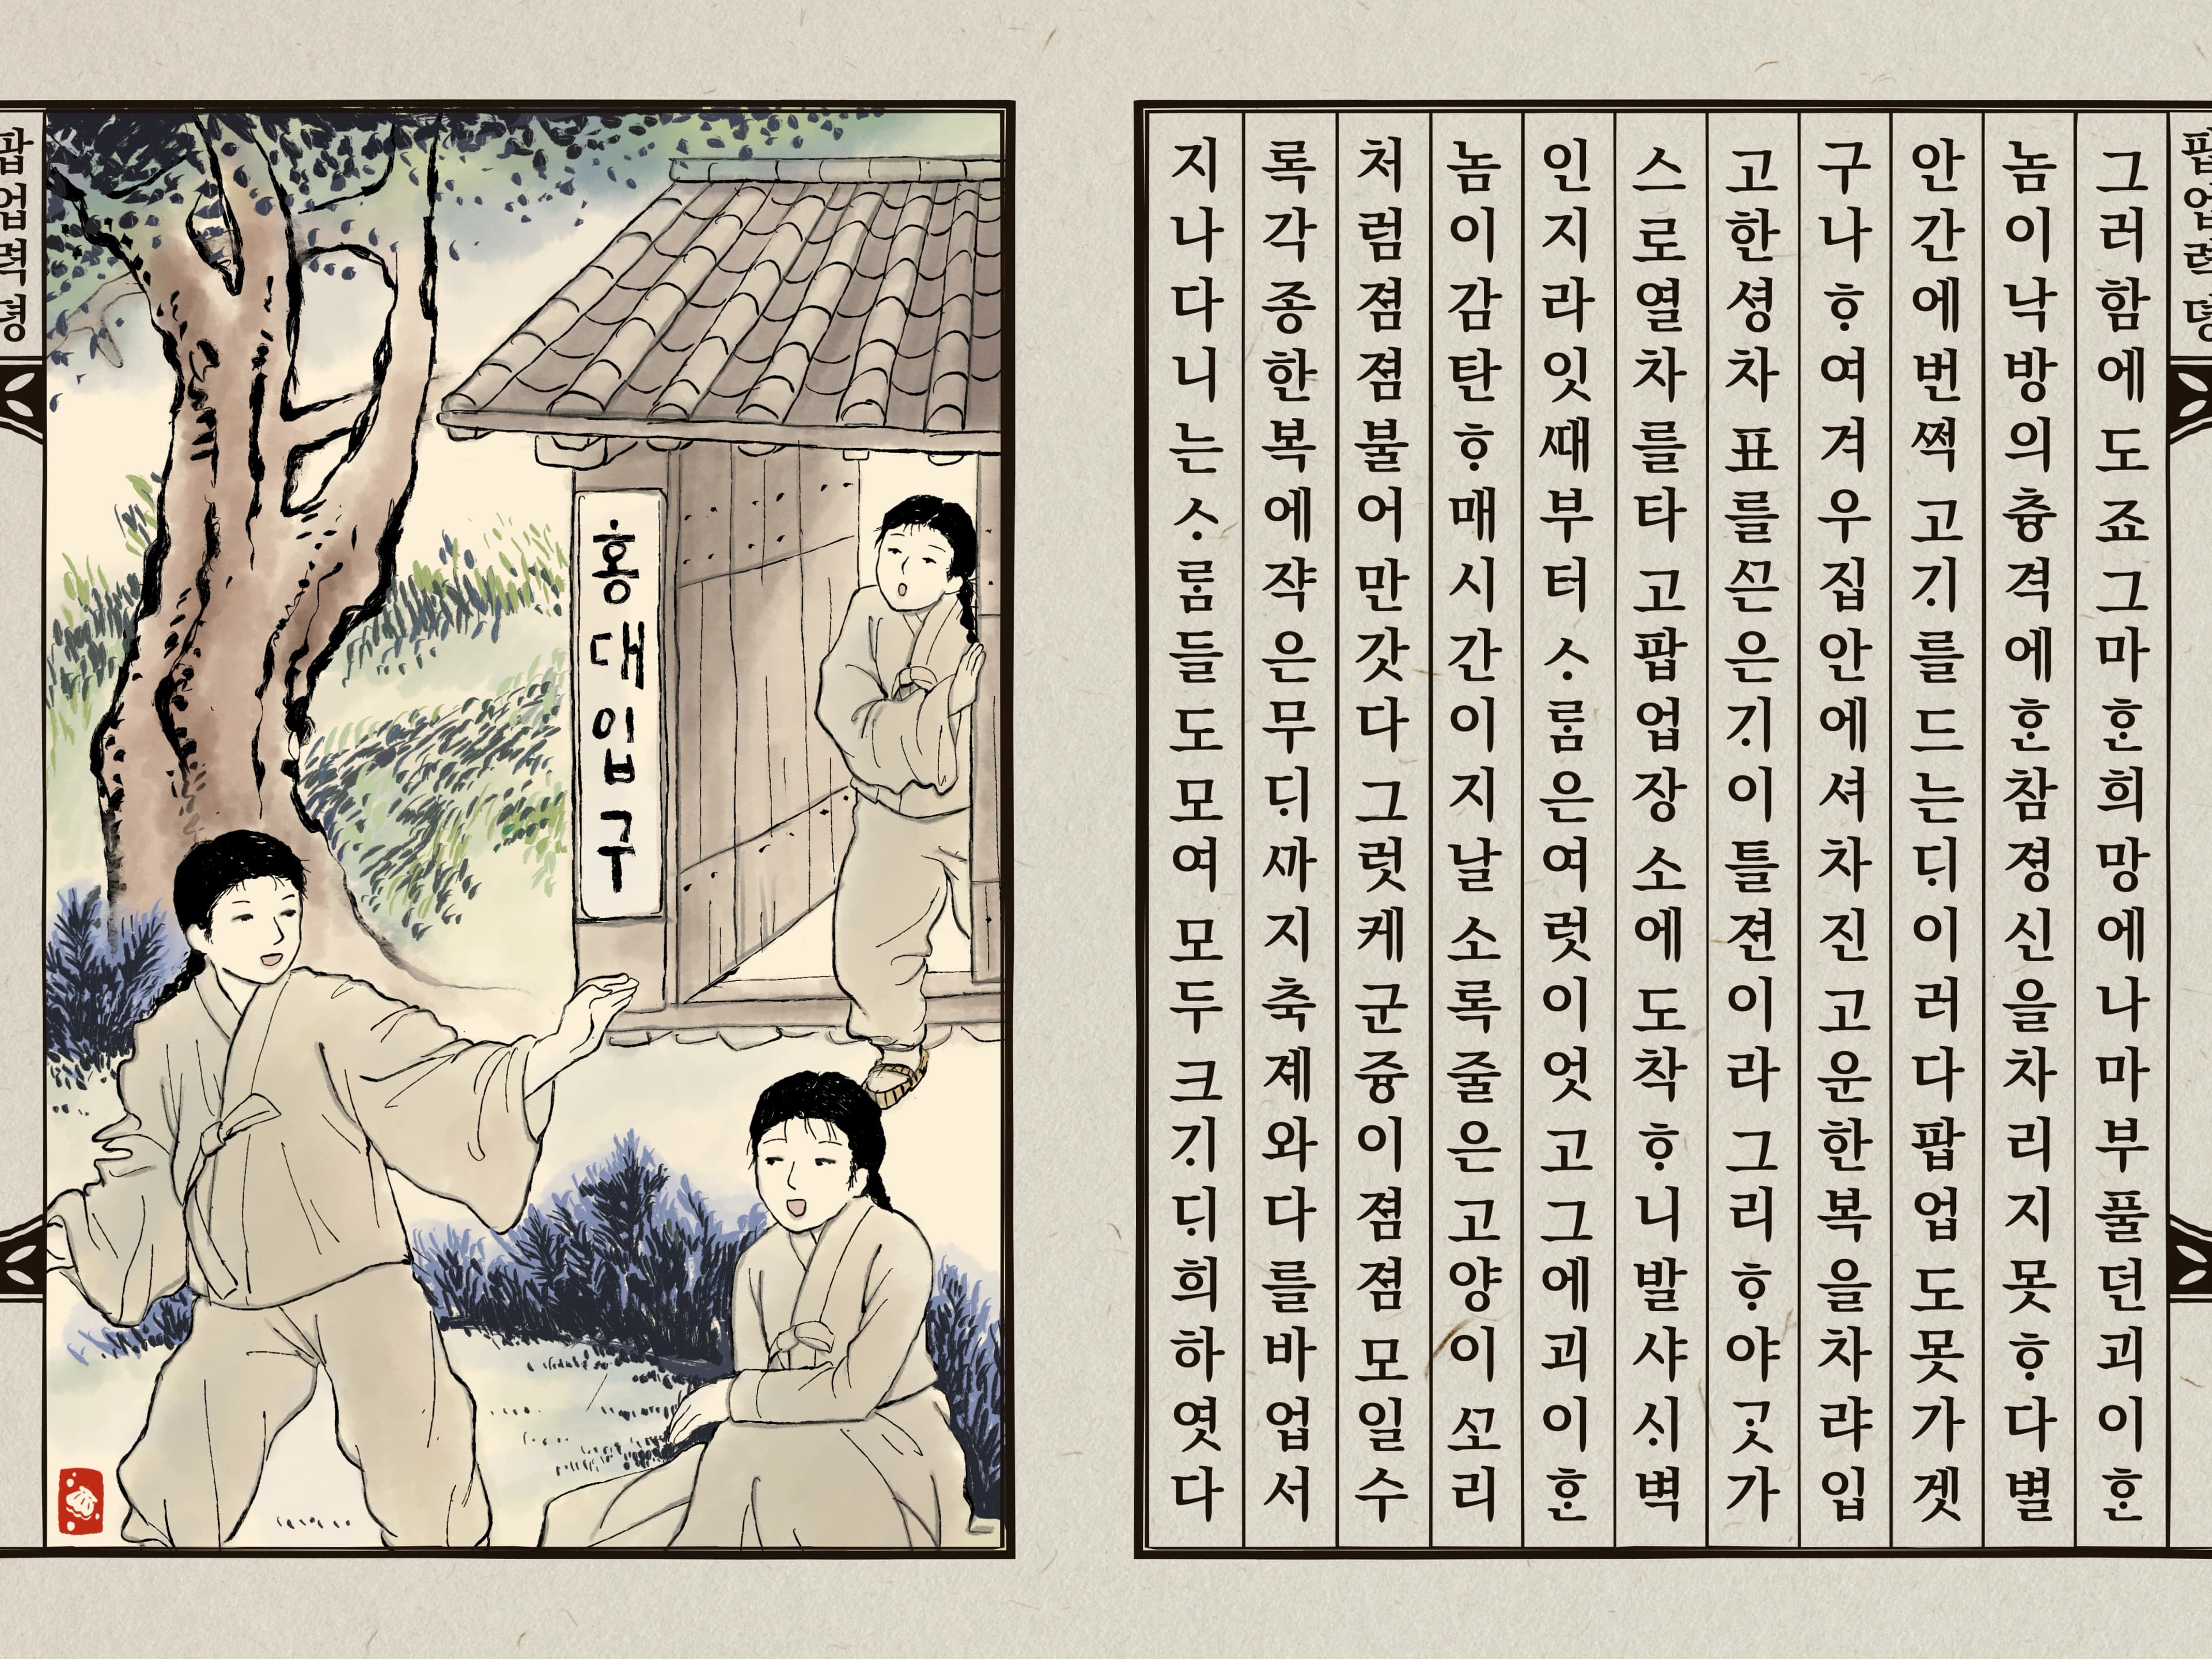 그러함에도죠그마ᄒᆞᆫ희망에나마부풀던괴이ᄒᆞᆫ
놈이낙방의츙격에ᄒᆞᆫ참졍신을차리지못ᄒᆞ다별
안간에번ᄶᅥᆨ고ᄀᆡ를드는ᄃᆡ이러다팝업도못가겟
구나ᄒᆞ여겨우집안에셔차진고운한복을차랴입
고한셩차표를ᄭᅳᆫ은ᄀᆡ이틀젼이라그리ᄒᆞ야ᄀᆞᆺ가
스로열차를타고팝업장소에도착ᄒᆞ니발샤ᄉᆡ벽
인지라잇ᄯᅢ부터ᄉᆞᄅᆞᆷ은여럿이엇고그에괴이ᄒᆞᆫ
놈이감탄ᄒᆞ매시간이지날소록줄은고양이ᄭᅩ리
처럼졈졈불어만갓다그럿케군즁이졈졈모일수
록각종한복에쟉은무ᄃᆡᄭᅡ지축졔와다를바업서
지나다니는ᄉᆞᄅᆞᆷ들도모여모두크ᄀᆡᄃᆡ희하엿다
홍대입구